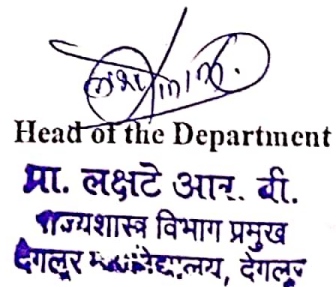 Head of the Department
प्रा. लक्षटे आर. बी.
राज्यशास्त्र विभाग प्रमुख
देगलूर महाविद्यालय, देगलूर